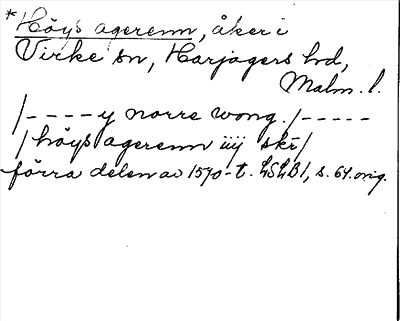 *Höys agerenn, åker i
Virke sn, Harjagers hd,
Malm. l.
/----y norre wong. /-----
/ höys agerenn iiij skr̄ /
förra delen av 1570-t. LSLB1, s. 64. orig.